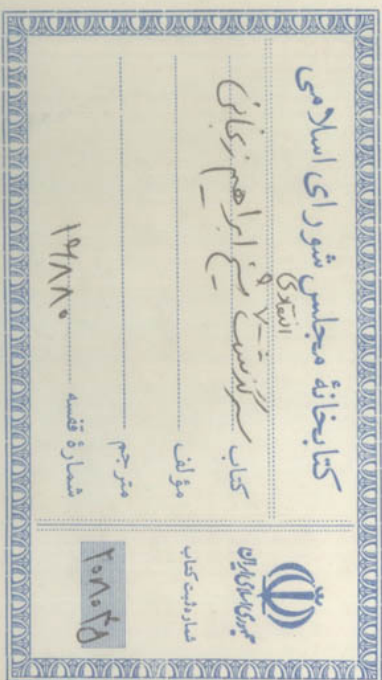 کتابخانهٔ مجلس شورای اسلامی
انتقادی
کتاب سرگذشت شیخ ابراهیم زنجانی
مؤلف
مترجم
شمارهٔ قفسه ۱۹۸۸۰
جمهوری اسلامی ایران
شماره ثبت کتاب
۲۰۸۰۳۵